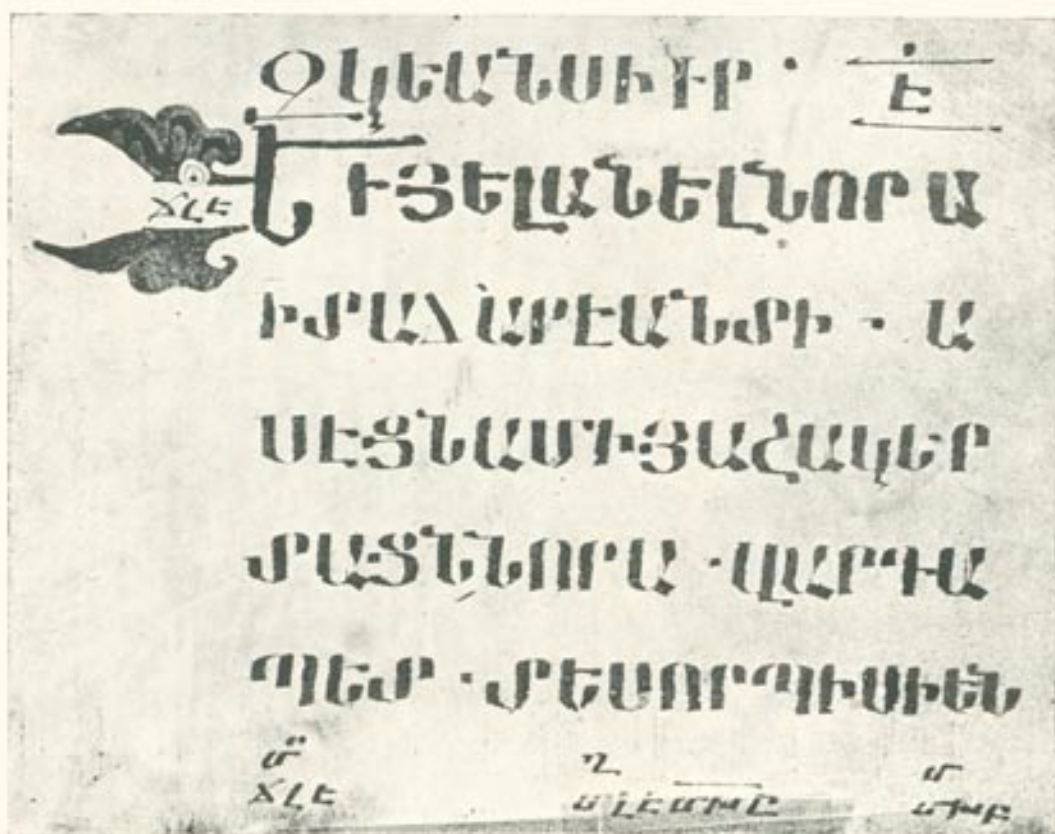 ԶԿԵԱՆՍԻՒՐ · Է
ՃԼԵ ԵՒՅԵԼԱՆԵԼՆՈՐԱ
ԻՏԱՃԱՐԷԱՆՏԻ · Ա
ՍԷՑՆԱՄԻՅԱՇԱԿԵՐ
ՏԱՑՆՆՈՐԱ · ՎԱՐԴԱ
ՊԵՏ · ՏԵՍՈՐՊԻՍԻԵՆ
ՃԼԵ